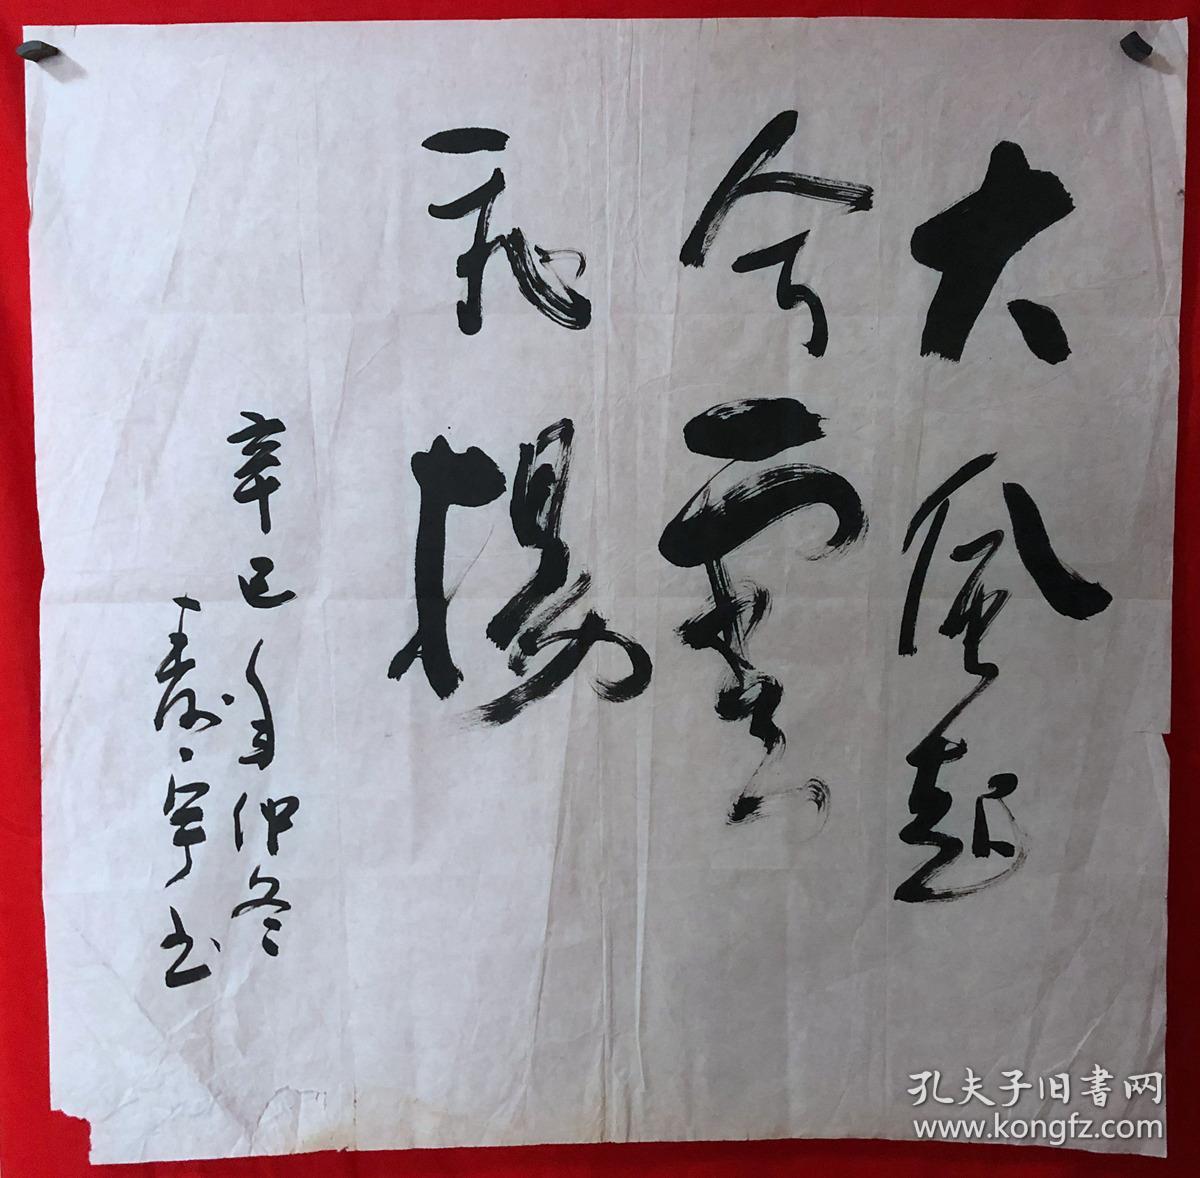 大风起
兮雲
飛揚
辛巳年仲冬
宇书
孔夫子旧書网
www.kongfz.com